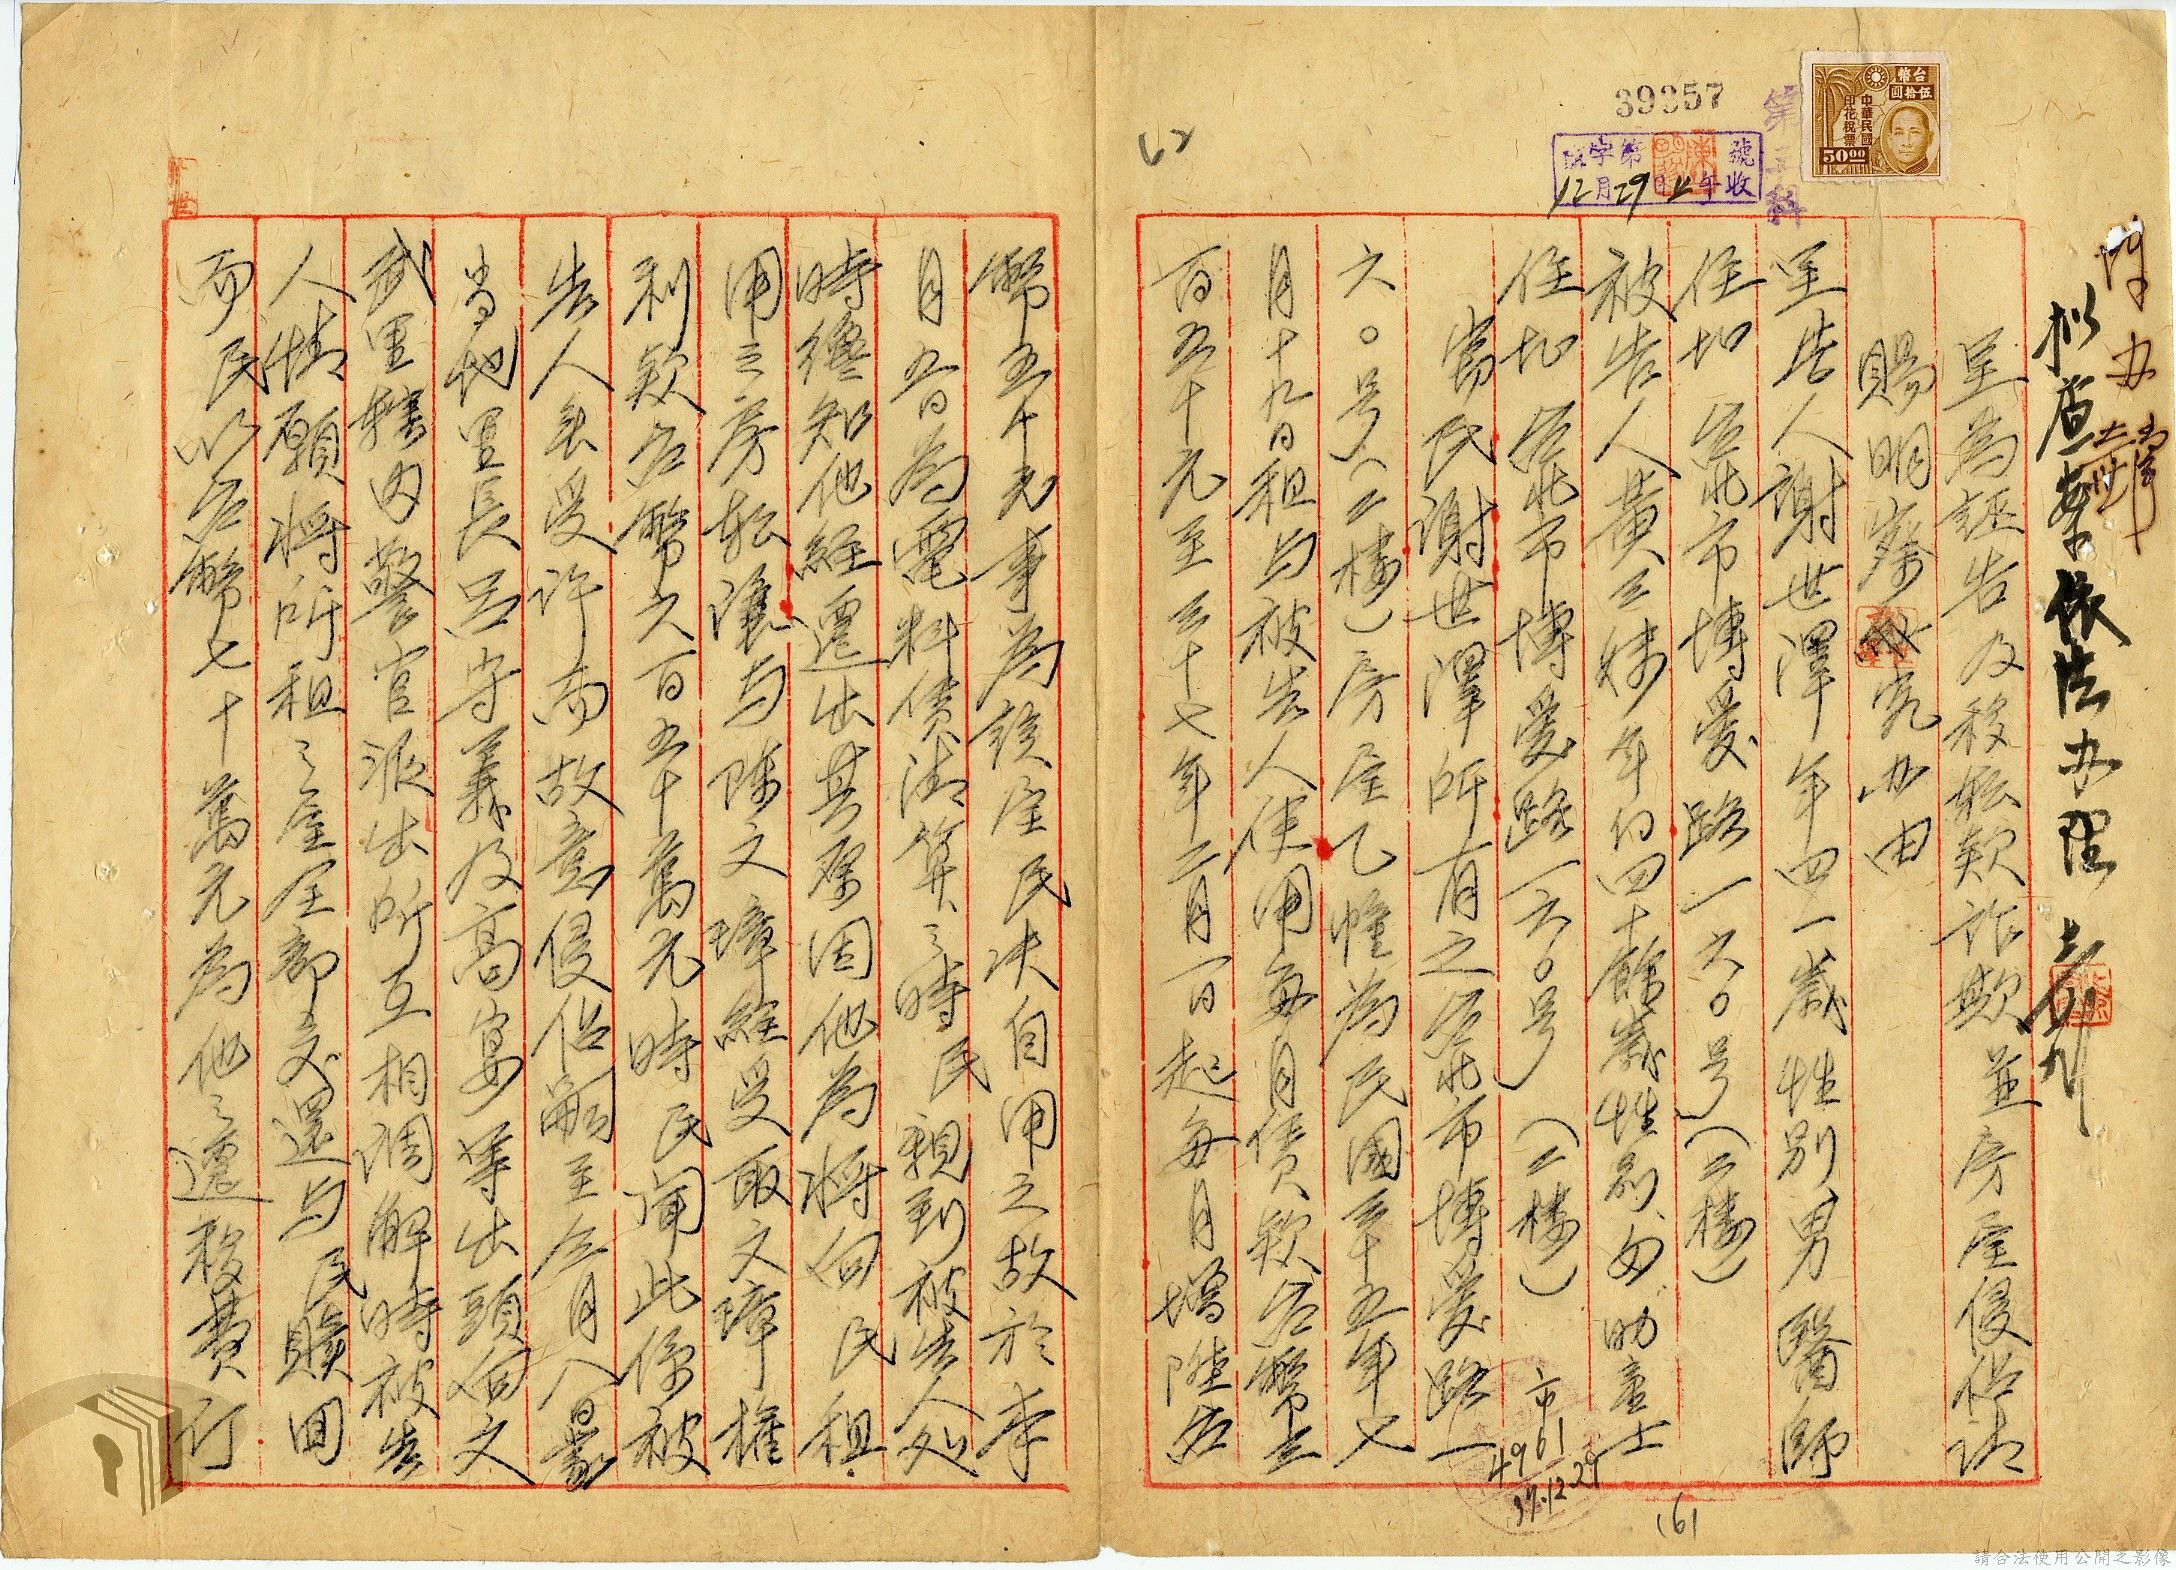 39357
62
號
字第
收
12月29日上午
第三科
台幣
伍拾圓
中華民國
印花稅票
50.00
拟查案依法办理
呈為誣告及移転欵詐欺並房屋侵佔請
賜明察 究办由
呈告人謝世澤年四一歲性別男醫師
住址 台北市博愛路一六〇号(二樓)
被告人黃王 年約四十餘歲性別女助產士
住址 台北市博愛路一六〇号(二樓)
竊民謝世澤所有之台北市博愛路一
六〇号(二樓)房屋乙幢為民國三十五年七
月十九日租与被告人使用每月賃欵台幣三
百五十元至三十七年二月一日起每月增陞台
幣五十元事為該屋民决自用之故於本
月五日為電料賃清算之時民親到被告人处
時纔知他經遷出其原因他為將向民租
用之房転讓与陳文璋經受取文璋權
利欵台幣六百五十萬元時民聞此係被
告人未受許而故意侵佔嗣至今月八日蒙
当地里長呂守義及高宴等出頭向文
武里轄內警官派出所互相調解時被告
人情願將所租之屋全部交還与民贖回
而民以台幣七十萬元為他之遷移費行
市
4961
37.12.29
161
請合法使用公開之影像